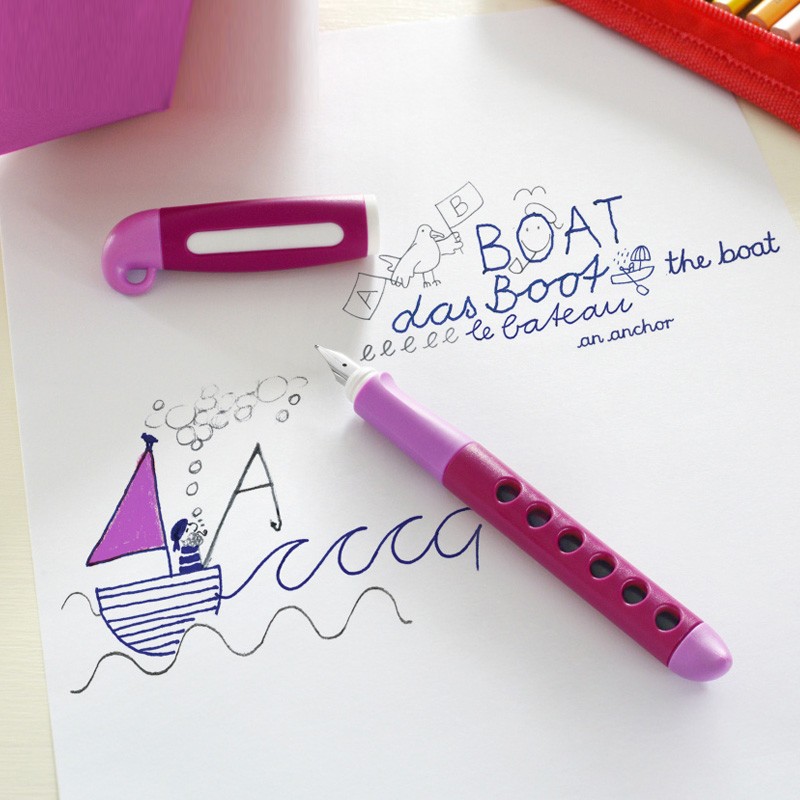 B
BOAT
A
das Boot
the boat
eeeee le bateau
an anchor
A
cccca